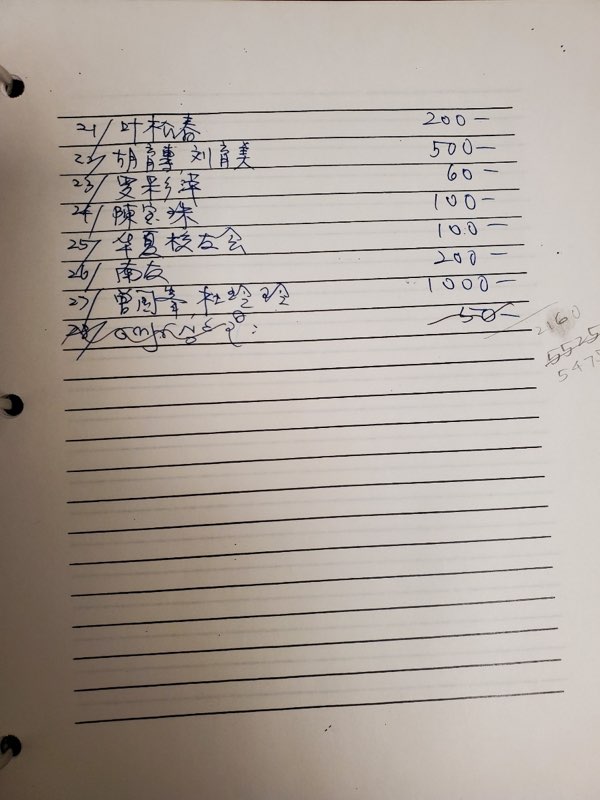 21/ 叶松春 200—
22/ 胡育專, 刘育美 500—
23/ 罗彩萍 60—
24/ 陳宝珠 100—
25/ 华夏校友会 100—
26/ 南友 200—
27/ 曾国峯, 杜玲玲 1000—
28/ 50—
2160
5525
547